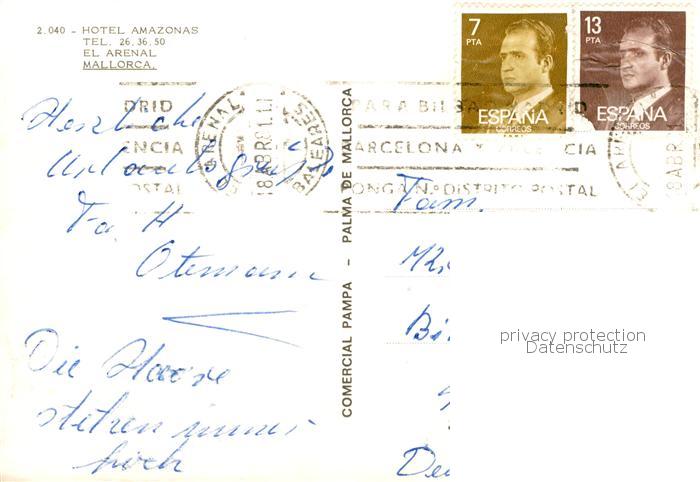 2.040 - HOTEL AMAZONAS
TEL. 26.36.50
EL ARENAL
MALLORCA.
COMERCIAL PAMPA - PALMA DE MALLORCA
7
PTA
ESPAÑA
CORREOS
13
PTA
ESPAÑA
CORREOS
DRID
NCIA
OSTAL
ARENAL
18 ABR 81
BALEARES
PARA BILBA
BARCELONA
CIA
PONGA Nº DISTRITO POSTAL
18 ABR
Herzliche
Urlaubsgrüße
Fa H
Die Haare
stehen immer
hoch
Fam.
privacy protection
Datenschutz